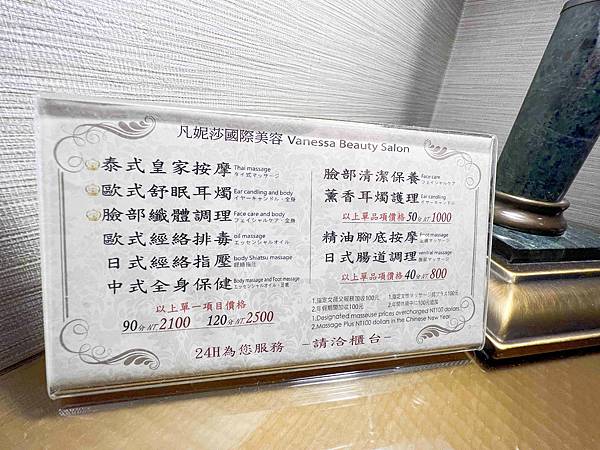 凡妮莎國際美容 Vanessa Beauty Salon
泰式皇家按摩 Thai massage タイ式マッサージ
歐式舒眠耳燭 Ear candling and body イヤーキャンドル・全身
臉部纖體調理 Face care and body フェイシャルケア・全身
歐式經絡排毒 oil massage エッセンシャルオイル
日式經絡指壓 body Shiatsu massage 經絡指圧
中式全身保健 Body massage and Foot massage
以上單一項目價格
90分NT2100 120分NT2500
臉部清潔保養 Face care フェイシャルケア
薰香耳燭護理 Ear candling イヤーキャンドル
以上單品項價格50分NT1000
精油腳底按摩 Foot massage 足裏マッサージ
日式腸道調理 ventral massage 腸道マッサージ
以上單品項價格40分NT800
1.指定女師父服務加收100元
2.年假期間加收100元
1.指定女性マッサージ師プラス100元
2.年假期間中に100元追加
1.Designated masseuse prices overcharged NT100 dollars
2.Massage Plus NT100 dollars in the Chinese New Year
24H為您服務 –請洽櫃台–